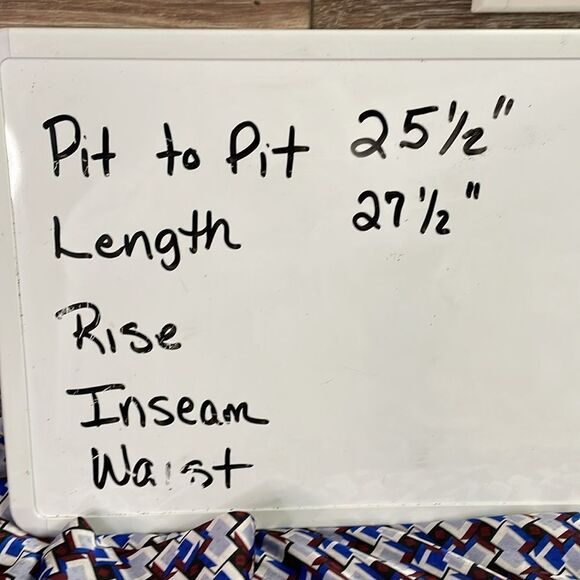 Pit to Pit 25 1/2"
Length 27 1/2"
Rise
Inseam
Waist